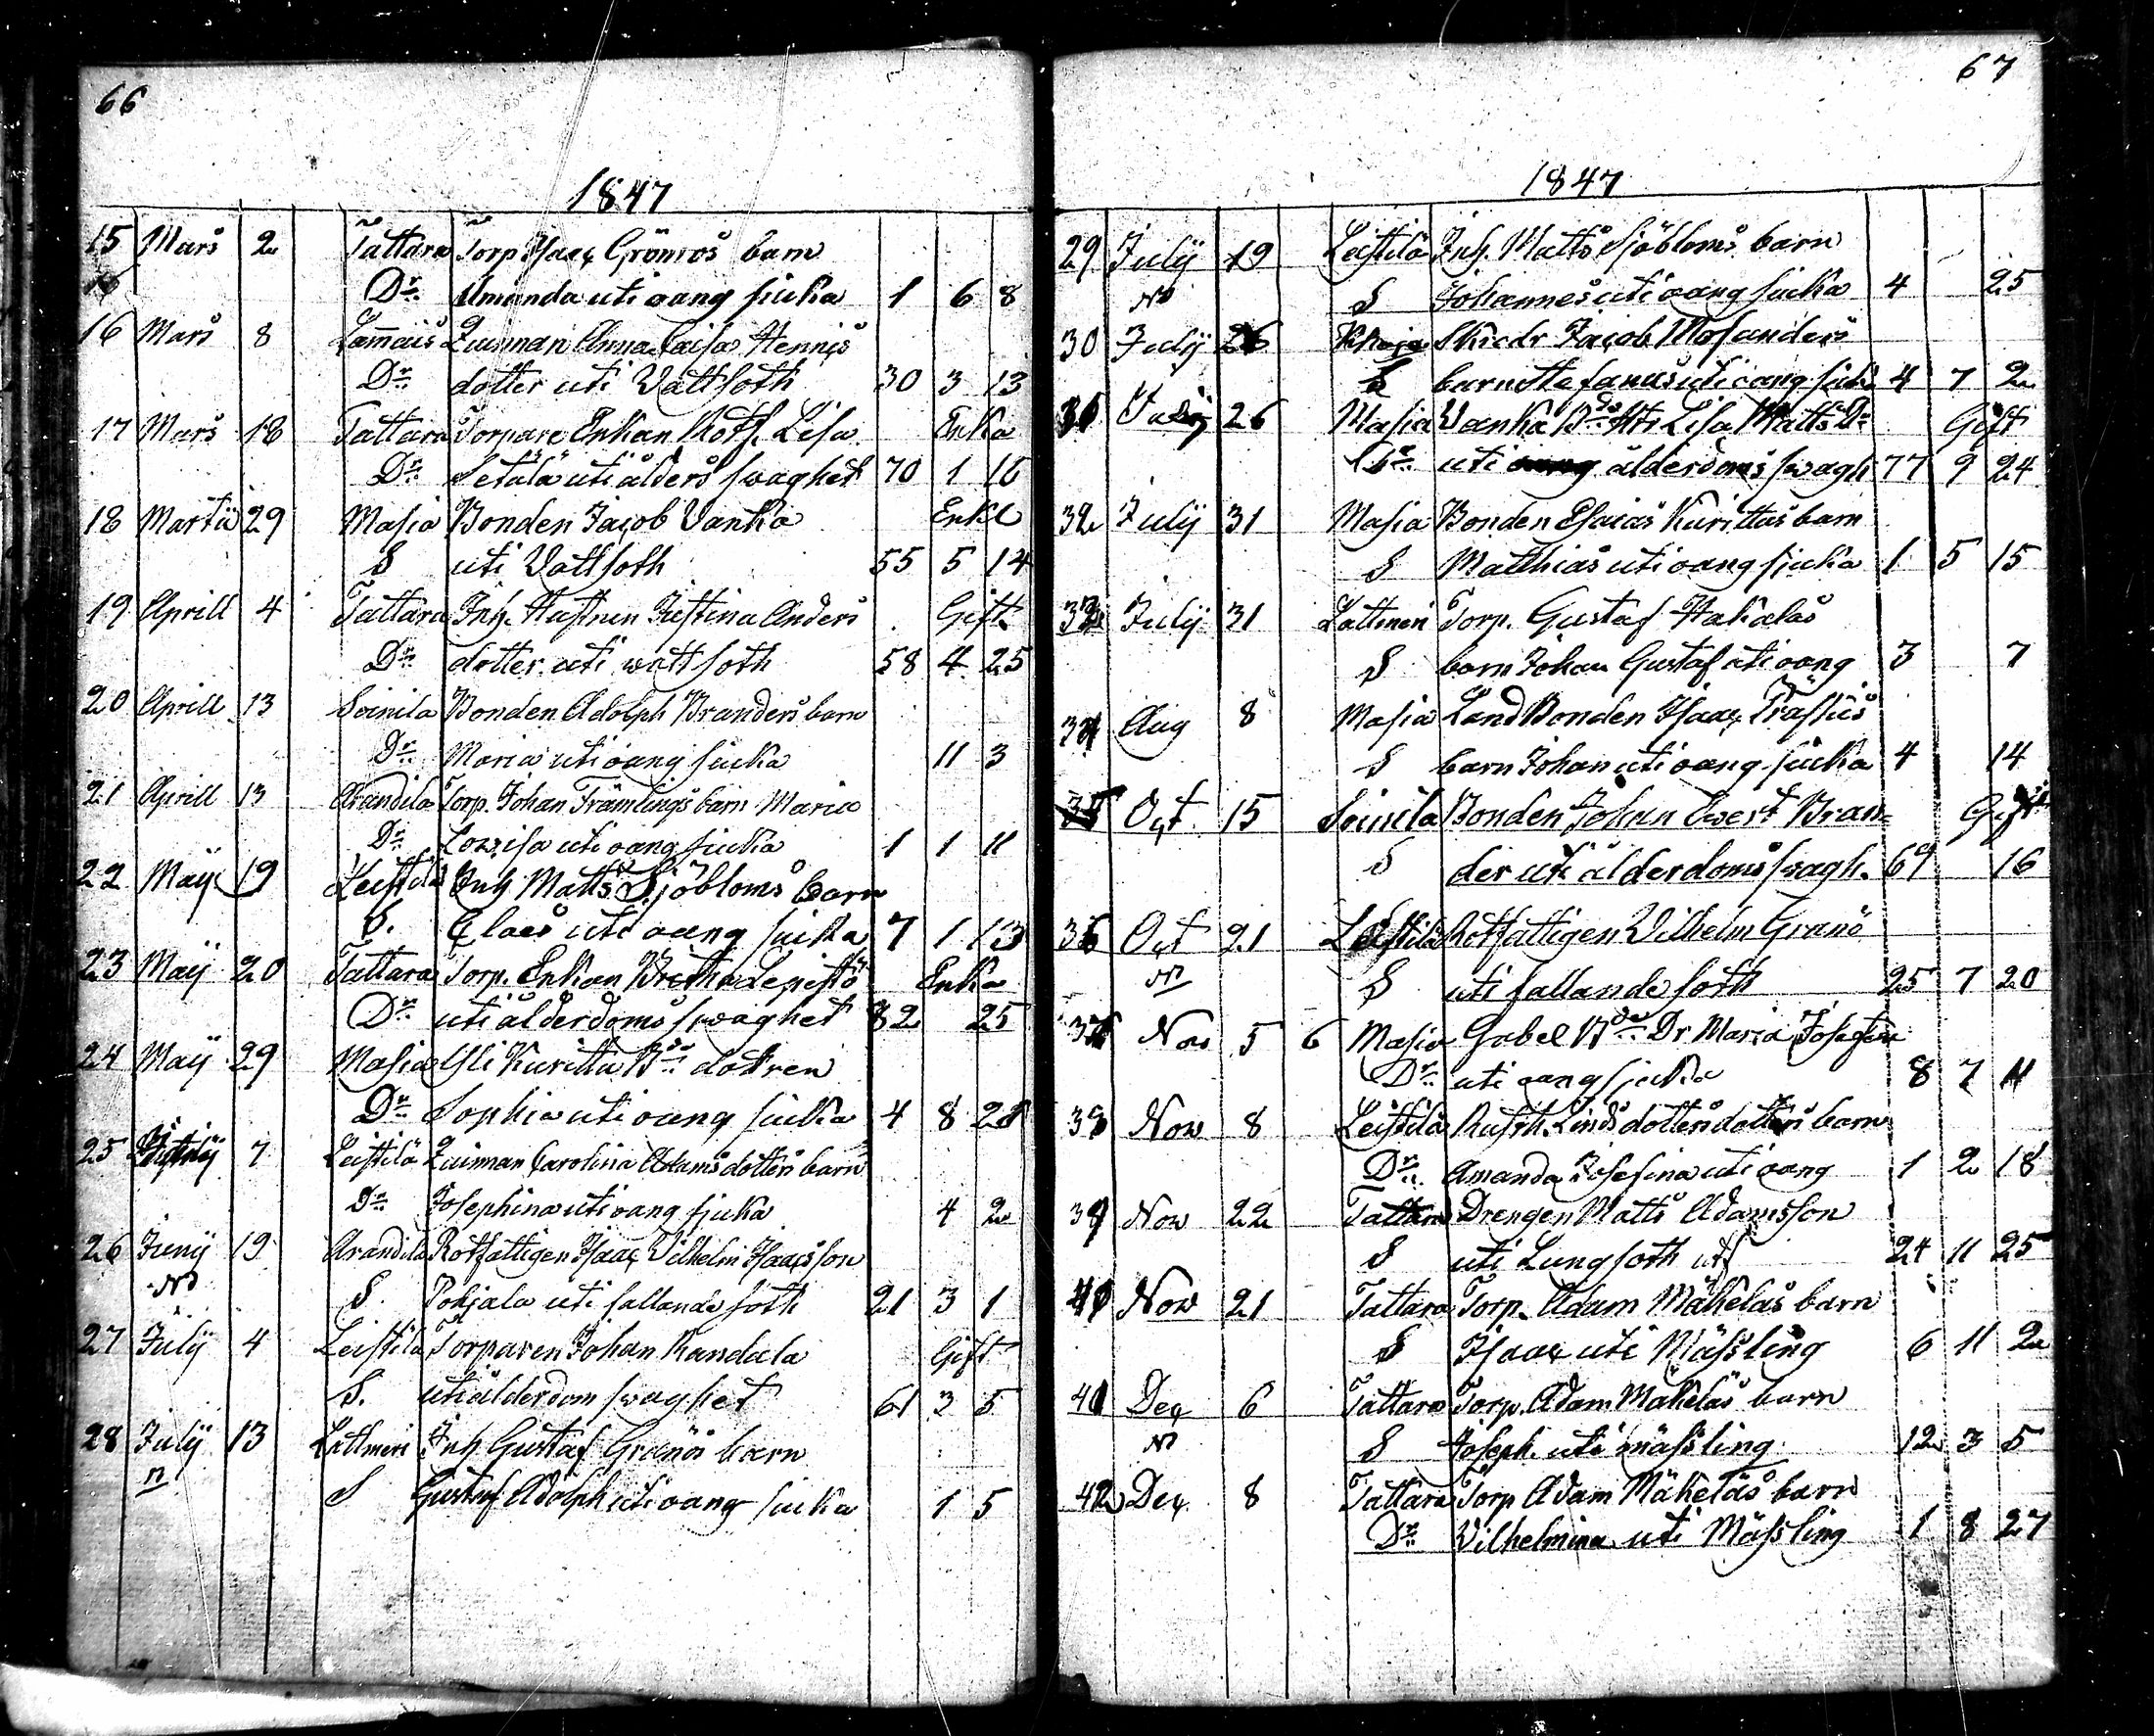 66
1847
15 Mars 2 Tattara Torp Isaac Grönros barn
Dr. Amanda uti oang siuka 1 6 8
16 Mars 8 Lammais Quinnan Anna Caisa Hennis
Dr. dotter uti Vattsoth 30 3 13
17 Mars 18 Tattara Torpare Enkan Rotf. Lisa Enka
Dr. Setälä uti ålders swaghet 70 1 16
18 Martii 29 Masia Bonden Jacob Vanka Enkl
S uti Vattsoth 55 5 14
19 Aprill 4 Tattara Inh. Justina Anders Gift
Dr. dotter uti wattsoth 58 4 25
20 Aprill 13 Soinila Bonden Adolph Branders barn
Dr. Maria uti oang siuka 11 3
21 Aprill 13 Arandila Torp. Johan Främlings barn Maria
Dr. Lowisa uti oang siuka 1 1 11
22 Maij 19 Leistilä Inh Matts Sjöbloms barn
S. Claes uti oang siuka 7 1 13
23 Maij 20 Tattara Torp. Enkan Britha Lepistö Enka
Dr. uti ålderdoms swaghet 82 25
24 Maij 29 Masia Yli Kuritta dotren
Dr. Sophia uti oang siuka 4 8 20
25 7 Leistilä Quinnan Carolina Adamsdotters barn
Dr. Josephina uti oang sjuka 4 2
26 Junij 19 Arandila Rotfattigen Isaac Vilhelm Isaacsson
S. Pohjala uti fallande soth 21 3 1
27 Julij 4 Leistilä Torparen Johan Kandala Gift
S. uti ålderdom swaghet 61 3 5
28 Julij 13 Lattmeri Inh Gustaf Granös barn
S Gustaf Adolph uti oang siuka 1 5
67
1847
29 Julij 19 Leistilä Inh. Matts Sjöbloms barn
S Johannes uti oang siuka 4 25
30 Julij 26 Skredr Jacob Mosanders
S barn Stefanus uti oang siuka 4 7 2
31 Julij 26 Masia Vanka Lisa Matts Dr Gift
uti ålderdoms swagh 77 9 24
32 Julij 31 Masia Bonden Esaias Kurittas barn
S Matthias uti oang sjuka 1 5 15
33 Julij 31 Lattmeri Torp. Gustaf Hakalas
S barn Johan Gustaf uti oang 3 7
34 Aug 8 Masia Land Bonden Isaac
S barn Johan uti oang siuka 4 14
35 Oct 15 Soinila Bonden Johan Evert Bran= Gift
S der uti ålderdoms swagh. 69 16
36 Oct 21 Leistilä Rotfattigen Vilhelm Granö
S uti fallande soth 25 7 20
37 Nov 5 6 Masia Gabel Dr Maria
Dr. uti oang sjuka 8 7 11
38 Now 8 Leistilä Rusth. Linds dotters dotters barn
Dr. Amanda Josefina uti oang 1 2 18
39 Now 22 Tattara Drengen Matts Adamsson
S uti Lungsoth 24 11 25
40 Now 21 Tattara Torp. Adam Mäkeläs barn
S Isaac uti Mässling 6 11 2
41 Dec 6 Tattara Torp. Adam Mäkeläs barn
S Joseph uti mässling 12 3 5
42 Dec 8 Tattara Torp Adam Mäkeläs barn
Dr. Vilhelmina uti Mässling 1 8 27